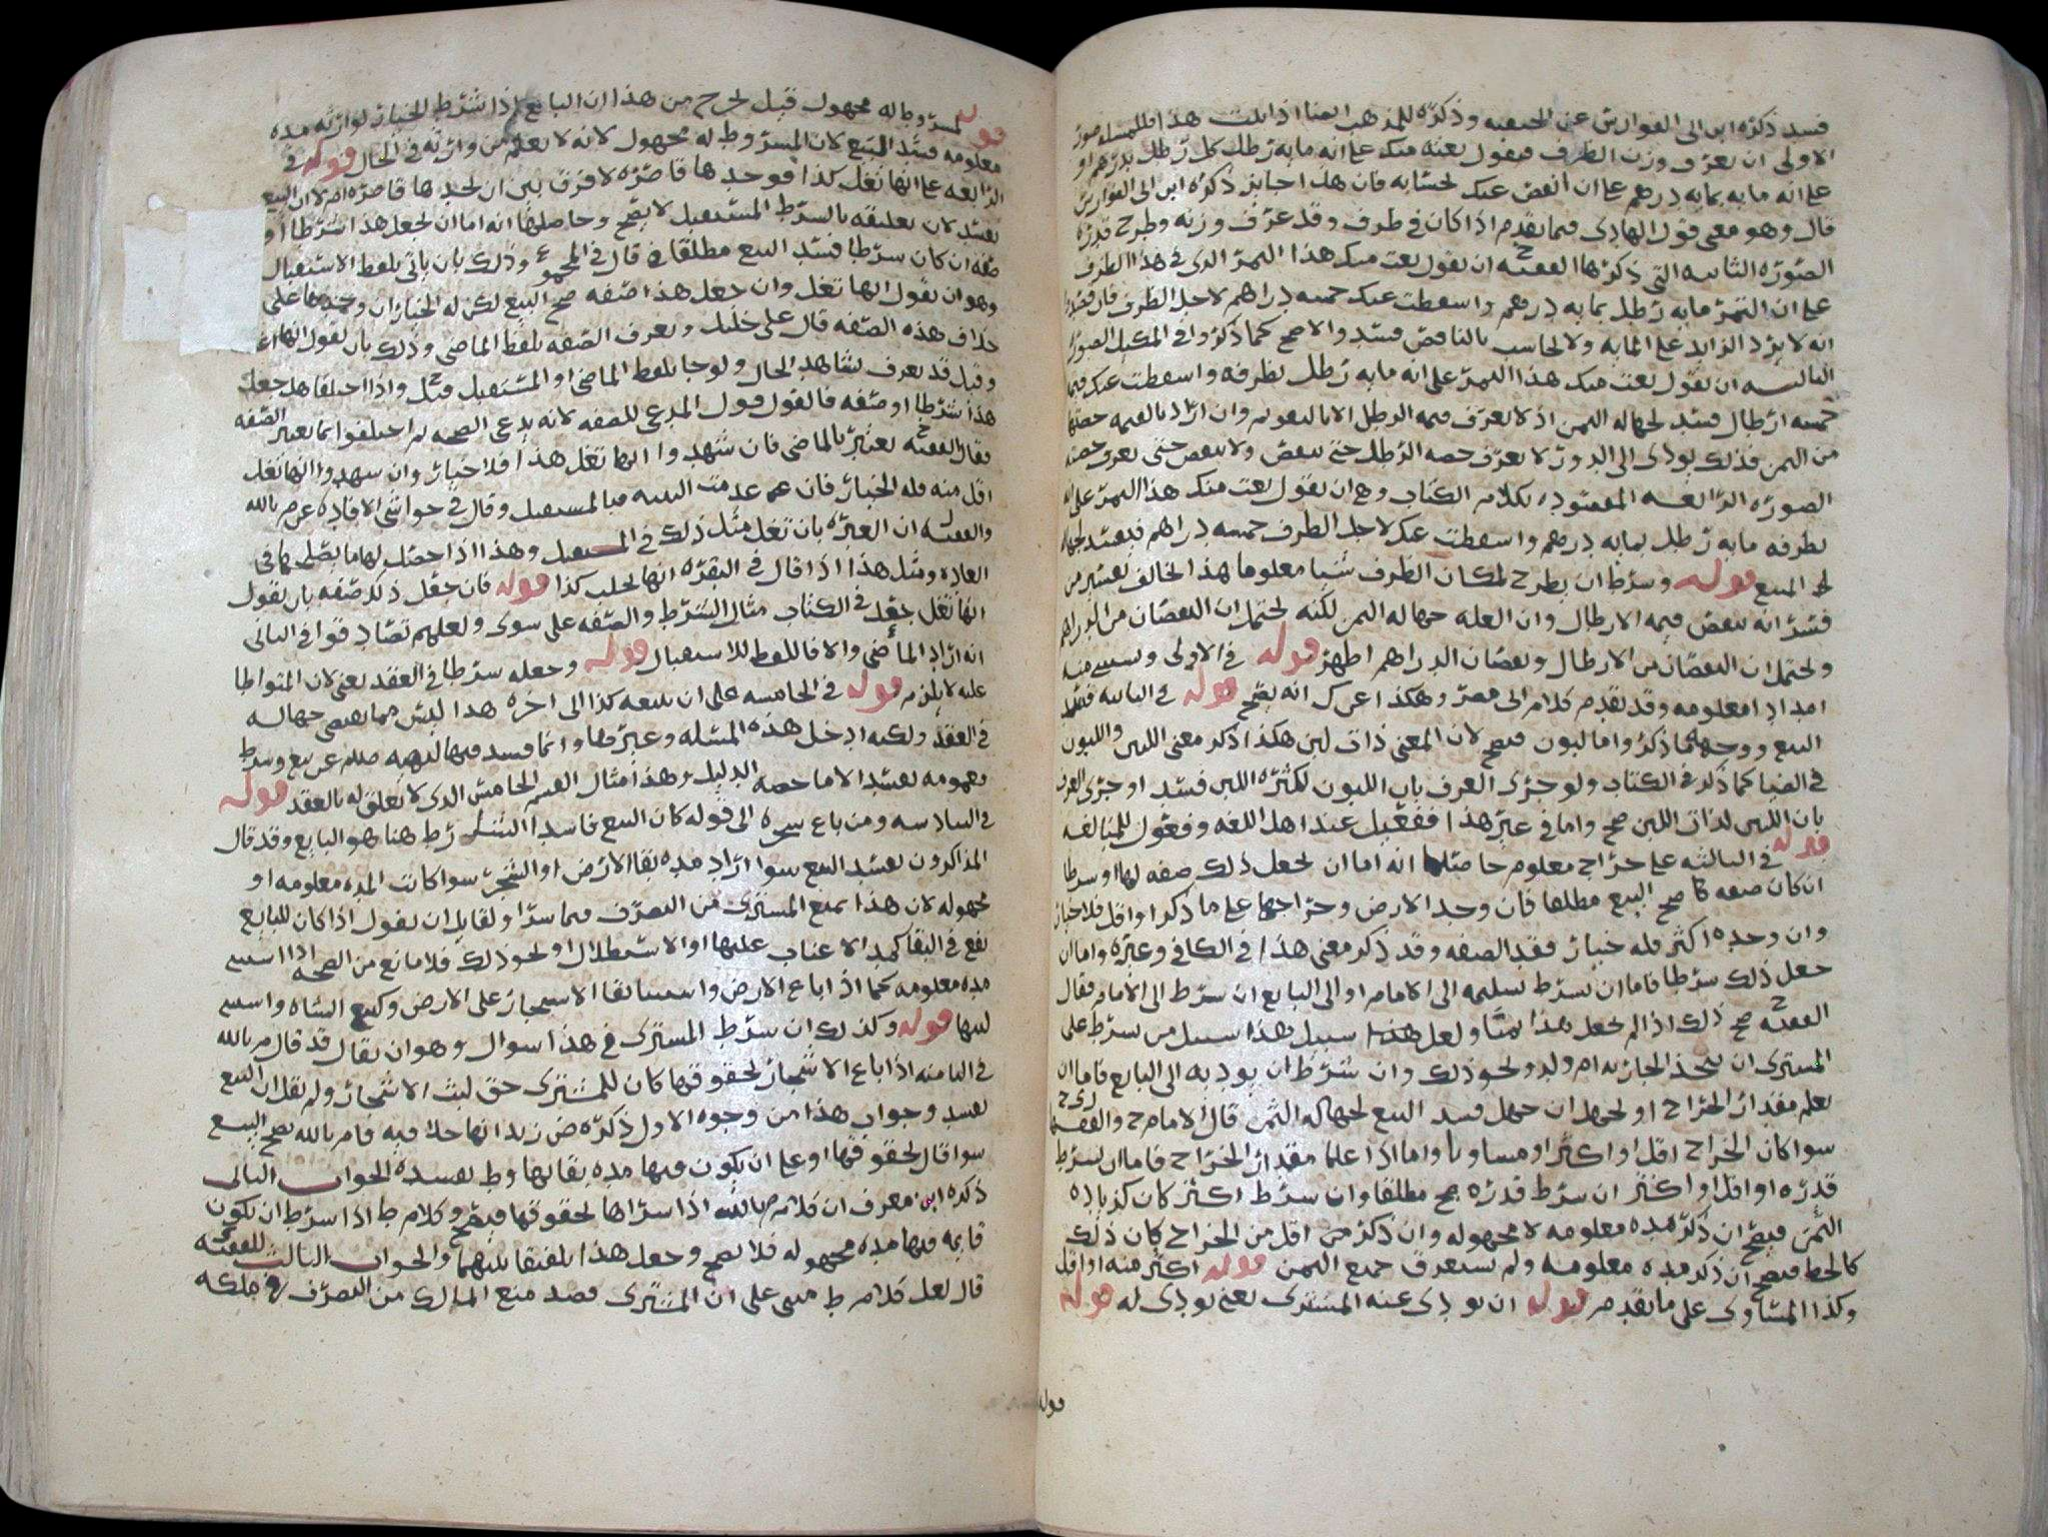 فسد ذكره ابن ابي الفوارس عن الحنفيه وذكره للمذهب ايضا اذا ثبت هذا فللمسله صور
الاولى ان يعرف وزن الظرف فيقول بعته منك على انه مايه رطل كل رطل بدرهم او
على انه مايه بمايه درهم على ان انقص عنك بحسابه فان هذا جايز ذكره ابن ابي الفوارس
قال وهو معنى قول الهادي فيما تقدم اذا كان في ظرف وقد عرف وزنه وطرح قدره
الصوره الثانيه التي ذكرها الفقيه ح ان يقول بعت منك هذا التمر الذي في هذا الظرف
على ان التمر مايه رطل بمايه درهم واسقطت عنك خمسه دراهم لاجل الظرف فان
انه لا يزد الزايد على المايه ولا يحاسب بالناقص فسد والا صح كما ذكروا في المكيل الصوره
الثالثه ان يقول بعت منك هذا التمر على انه مايه رطل بظرفه واسقطت عنك قيمه
خمسه ارطال فسد لجهاله الثمن اذ لا يعرف قيمه الرطل الا بالتقويم وان اراد بالقيمه حصتها
من الثمن فذلك يودي الى الدور لا يعرف حصه الرطل حتى ينقص ولا ينقص حتى يعرف حصته
الصوره الرابعه المقصوده بكلام الكتاب وهي ان يقول بعت منك هذا التمر على انه
بظرفه مايه رطل بمايه درهم واسقطت عنك لاجل الظرف خمسه دراهم فيفسد لجهاله
المبيع قوله وشرط ان يطرح لمكان الظرف شيا معلوما هذا يخالف تفسير من
فسر انه ينقص قيمه الارطال وان العله جهاله الثمن لكنه يحتمل ان النقصان من الدراهم
ويحتمل ان النقصان من الارطال ونقصان الدراهم اظهر قوله في الاولى ويستثني منه
امدادا معلومه وقد تقدم كلام ابي مضر وهكذا عن ك انه يصح قوله في الثانيه فسد
البيع ووجهه ما ذكر واما لبون فيصح لان المعنى ذات لبن هكذا ذكر معنى اللبن واللبون
في الضيا كما ذكر في الكتاب ولو جرى العرف بان اللبون لكثره اللبن فسد او جرى العرف
بان اللبن لذات اللبن صح واما في غير هذا ففعيل عند اهل اللغه وفعول للمبالغه
قوله في الثالثه على خراج معلوم حاصله انه اما ان يجعل ذلك صفه لها او شرطا
ان كان صفه لها صح البيع مطلقا فان وجد الارض وخراجها على ما ذكر او اقل فلا خيار
وان وجده اكثر فله خيار فقد الصفه وقد ذكر معنى هذا في الكافي وغيره واما ان
جعل ذلك شرطا فاما ان يشرط تسليمه الى الامام او الى البايع ان شرط الى الامام فقال
الفقيه ح صح ذلك اذا لم يجعل هذا ثمنا ولعل هذا سبيل هذا سبيل من شرط على
المشتري ان يتخذ الجاريه ام ولد ونحو ذلك وان شرط ان يوديه الى البايع فاما ان
يعلم مقدار الخراج او يجهل ان جهل فسد البيع لجهاله الثمن قال الامام ح والفقيهان
سوا كان الخراج اقل او اكثر او مساويا واما اذا علما مقدار الخراج فاما ان يشرط
قدره او اقل او اكثر ان شرط قدره صح مطلقا وان شرط اكثر كان كزياده
الثمن فيصح ان ذكر مده معلومه لا مجهوله وان ذكر من اقل من الخراج كان ذلك
كالحط فيصح ان ذكر مده معلومه ولم يستغرق جميع الثمن قوله اكثر منه او اقل
وكذا المساوي على ما تقدم قوله ان يودي عنه المشتري يعني يودي له قوله
قوله
قوله لمشروط له مجهول قيل يخرج من هذا ان البايع اذا شرط الخيار لوارثه مده
معلومه فسد البيع لان المشروط له مجهول لانه لا يعلم من وارثه في الحال قوله في
الرابعه على انها تغل كذا فوجدها قاصره لا فرق بين ان يجدها قاصره ام لا ان البيع
يفسد لان تعليقه بالشرط المستقبل لا يصح وحاصلها انه اما ان يجعل هذا شرطا او
صفه ان كان شرطا فسد البيع مطلقا قال في المجموع وذلك بان ياتي بلفظ الاستقبال
وهو ان يقول انها تغل وان جعل هذا صفه صح البيع لكن له الخيار ان وجدها على
خلاف هذه الصفه قال علي خليل ويعرف الصفه بلفظ الماضي وذلك بان يقول انها
وقيل قد يعرف بشاهد الحال ولو جا بلفظ الماضي او المستقبل قيل واذا اختلفا هل جعل
هذا شرطا او صفه فالقول قول المدعي للصفه لانه يدعي الصحه ثم اختلفوا بما يعتبر الصفه
فقال الفقيه ح يعتبر بالماضي فان شهدوا انها تغل هذا فلا خيار وان شهدوا انها تغل
اقل منه فله الخيار فان عدمت البينه فبالمستقبل وقال في حواشي الافاده عن م بالله
والفقيه ل ان العبره بان تغل مثل ذلك في المستقبل وهذا اذا حصل لها ما يصلحها في
العاده ومثل هذا اذا قال في البقره انها تحلب كذا قوله فان جعل ذكر صفه بان يقول
انها تغل جعل في الكتاب مثال الشرط والصفه على سوى ولعلهم تصادقوا في الثاني
انه اراد الماضي والا فاللفظ للاستقبال قوله وجعله شرطا في العقد يعني لان المتواطا
عليه لا يلزم قوله في الخامسه على ان يبيعه كذا الى اخره هذا ليس مما يقتضي جهاله
في العقد ولكنه ادخل هذه المسله وغيرها وانما فسد فيها لنهيه صلم عن بيع وشرط
فعمومه يفسد الا ما خصه الدليل وهذا مثال القسم الخامس الذي لا تعلق له بالعقد قوله
في السادسه ومن باع شجره الى قوله كان البيع فاسدا الشارط هنا هو البايع وقد قال
المذاكرون يفسد البيع سوا اراد مده بقا الارض او الشجر سوا كانت المده معلومه او
مجهوله لان هذا يمنع المشتري من التصرف فيما شرا ولقايل ان يقول اذا كان للبايع
نفع في البقا كمد الاعناب عليها او الاستظلال ونحو ذلك فلا مانع من الصحه اذا استثنى
مده معلومه كما اذا باع الارض واستثنا بقا الاشجار على الارض وكبيع الشاه واستثنى
لبنها قوله وكذلك ان شرط المشتري في هذا سوال وهو ان يقال قد قال م بالله
في الثامنه اذا باع الاشجار بحقوقها كان للمشتري حق لبث الاشجار ولم يقل ان البيع
يفسد وجواب هذا من وجوه الاول ذكره ض زيد انها خلافيه فا م بالله يصح البيع
سوا قال بحقوقها او على ان يكون فيها مده بقايها وط يفسده الجواب الثاني
ذكره ابن معرف ان كلام م بالله اذا شراها بحقوقها فيصح وكلام ط اذا شرط ان يكون
قايمه فيها مده مجهوله فلا يصح وجعل هذا تلفيقا بينهما والجواب الثالث للفقيه
قال لعل كلام ط مبني على ان المشتري قصد منع المالك من التصرف في ملكه